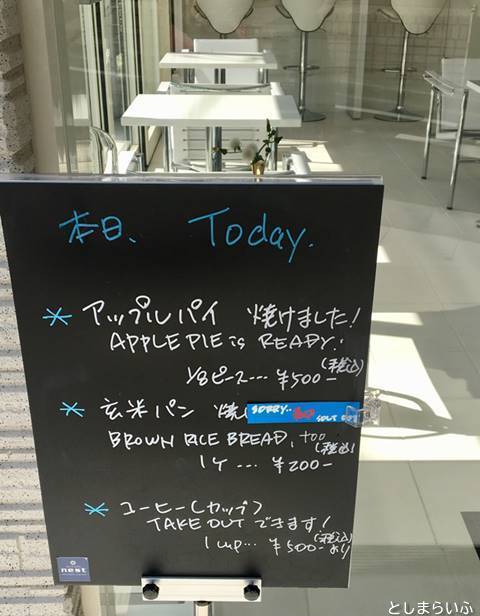 本日、 Today.
* アップルパイ 焼けました!
APPLE PIE is READY.
(税込)
1/8ピース… ¥500-
* 玄米パン 焼
SORRY.. SOLD OUT
BROWN RICE BREAD, too
(税込)
1ケ … ¥200-
* コーヒー(カップ)
TAKE OUT できます!
(税込)
1 cup… ¥500-より
nest
としまらいふ